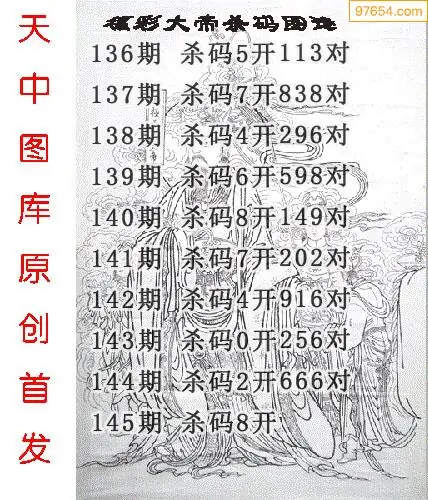 97654.com
福彩大帝杀码图迷
136期 杀码5开113对
137期 杀码7开838对
138期 杀码4开296对
139期 杀码6开598对
140期 杀码8开149对
141期 杀码7开202对
142期 杀码4开916对
143期 杀码0开256对
144期 杀码2开666对
145期 杀码8开
天中图库原创首发